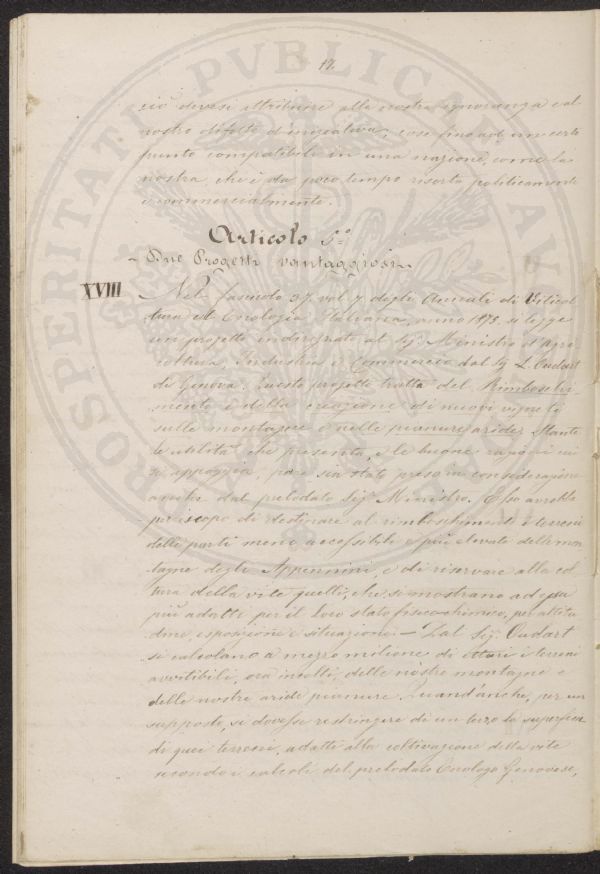 17.
ciò devesi attribuire alla nostra ignoranza e al
nostro difetto d'iniziativa, cose fino ad un certo
punto compatibili in una nazione, come la
nostra, che è da poco tempo risorta politicamente
e commercialmente.
Articolo 5º
Due Progetti vantaggiosi.
XVIII Nel fascicolo 37. vol. 7 degli Annali di Viticol-
tura ed Enologia Italiana, anno 1875. si legge
un progetto indirizzato al Sig. Ministro d'Agri
coltura Industria e Commercio dal Sig. L. Oudart
di Genova. Questo progetto tratta del Rimboschi-
mento e della creazione di nuovi vigneti
sulle montagne e nelle pianure aride. Stante
le utilità che presenta, e le buone ragioni cui
si appoggia, pare sia stato preso in considerazione
anche dal prelodato Sig. Ministro. Esso avrebbe
per iscopo di destinare al rimboschimento i terreni
delle parti meno accessibili e più elevate delle mon
tagne degli Appennini, e di riservare alla col
tura della vite quelli, che si mostrano ad essa
più adatti per il loro stato fisico-chimico, per altitu
dine, esposizione e situazione. — Dal Sig. Oudart
si calcolano a mezzo milione di ettari i terreni
avvitibili, ora incolti, delle nostre montagne e
delle nostre aride pianure. Quand'anche, per un
supposto, si dovesse restringere di un terzo la superficie
di quei terreni, adatti alla coltivazione della vite
secondo i calcoli del prelodato Enologo Genovese,
PROSPERITATI PVBLICAE AV